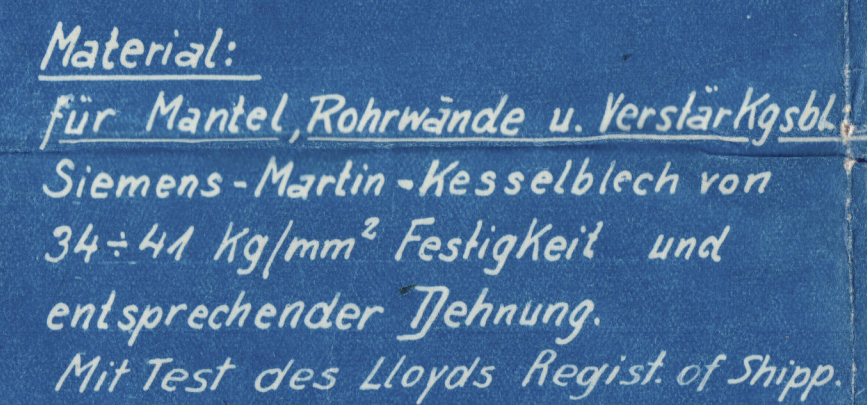 Material:
für Mantel, Rohrwände u. Verstärkgsbl.
Siemens-Martin-Kesselblech von
34÷41 Kg/mm² Festigkeit und
entsprechender Dehnung.
Mit Test des Lloyds Regist. of Shipp.